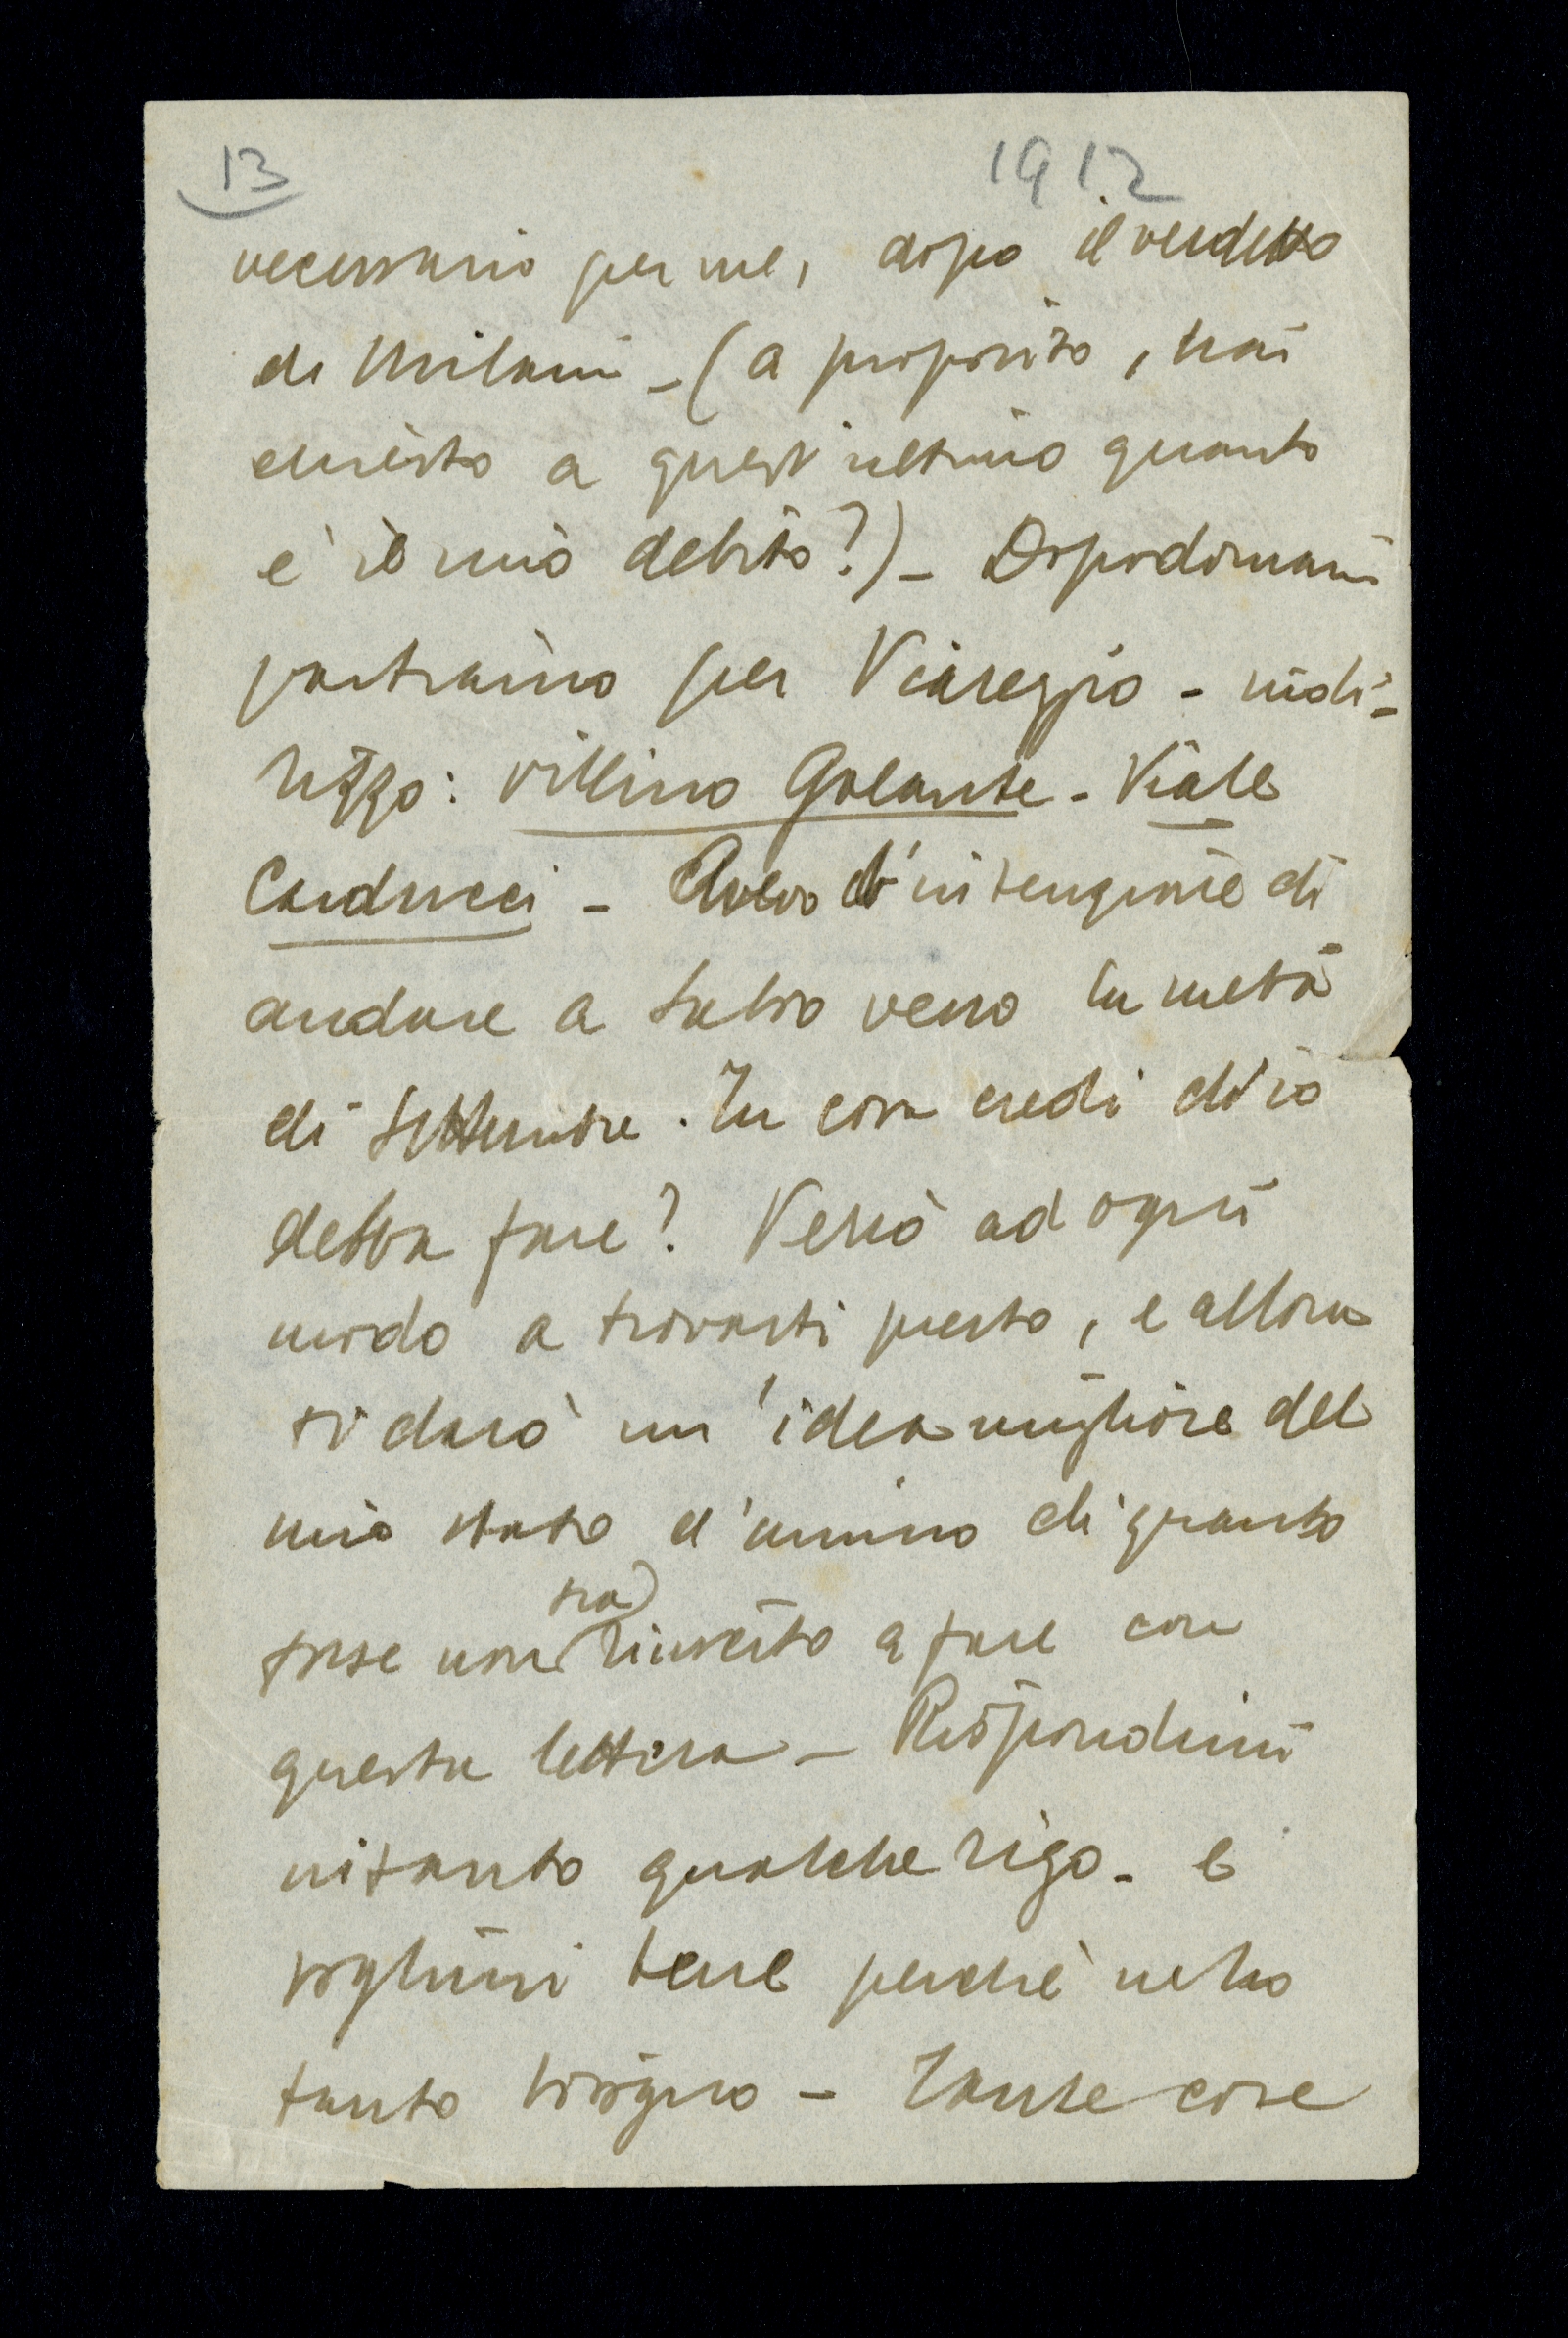 13
1912
necessario per me, dopo il verdetto
di Milani - (a proposito, hai
chiesto a quest'ultimo quanto
è il mio debito?) - Dopodomani
partiamo per Viareggio - indi-
rizzo: villino Galante - Viale
Carducci - Avevo l'intenzione di
andare a Salso verso la metà
di Settembre. Tu cosa credi ch'io
debba fare? Verrò ad ogni
modo a trovarti presto, e allora
ti darò un'idea migliore del
mio stato d'animo di quanto
sia
forse non riuscito a fare con
questa lettera - Rispondimi
intanto qualche rigo - e
voglimi bene perchè ne ho
tanto bisogno - Tante cose